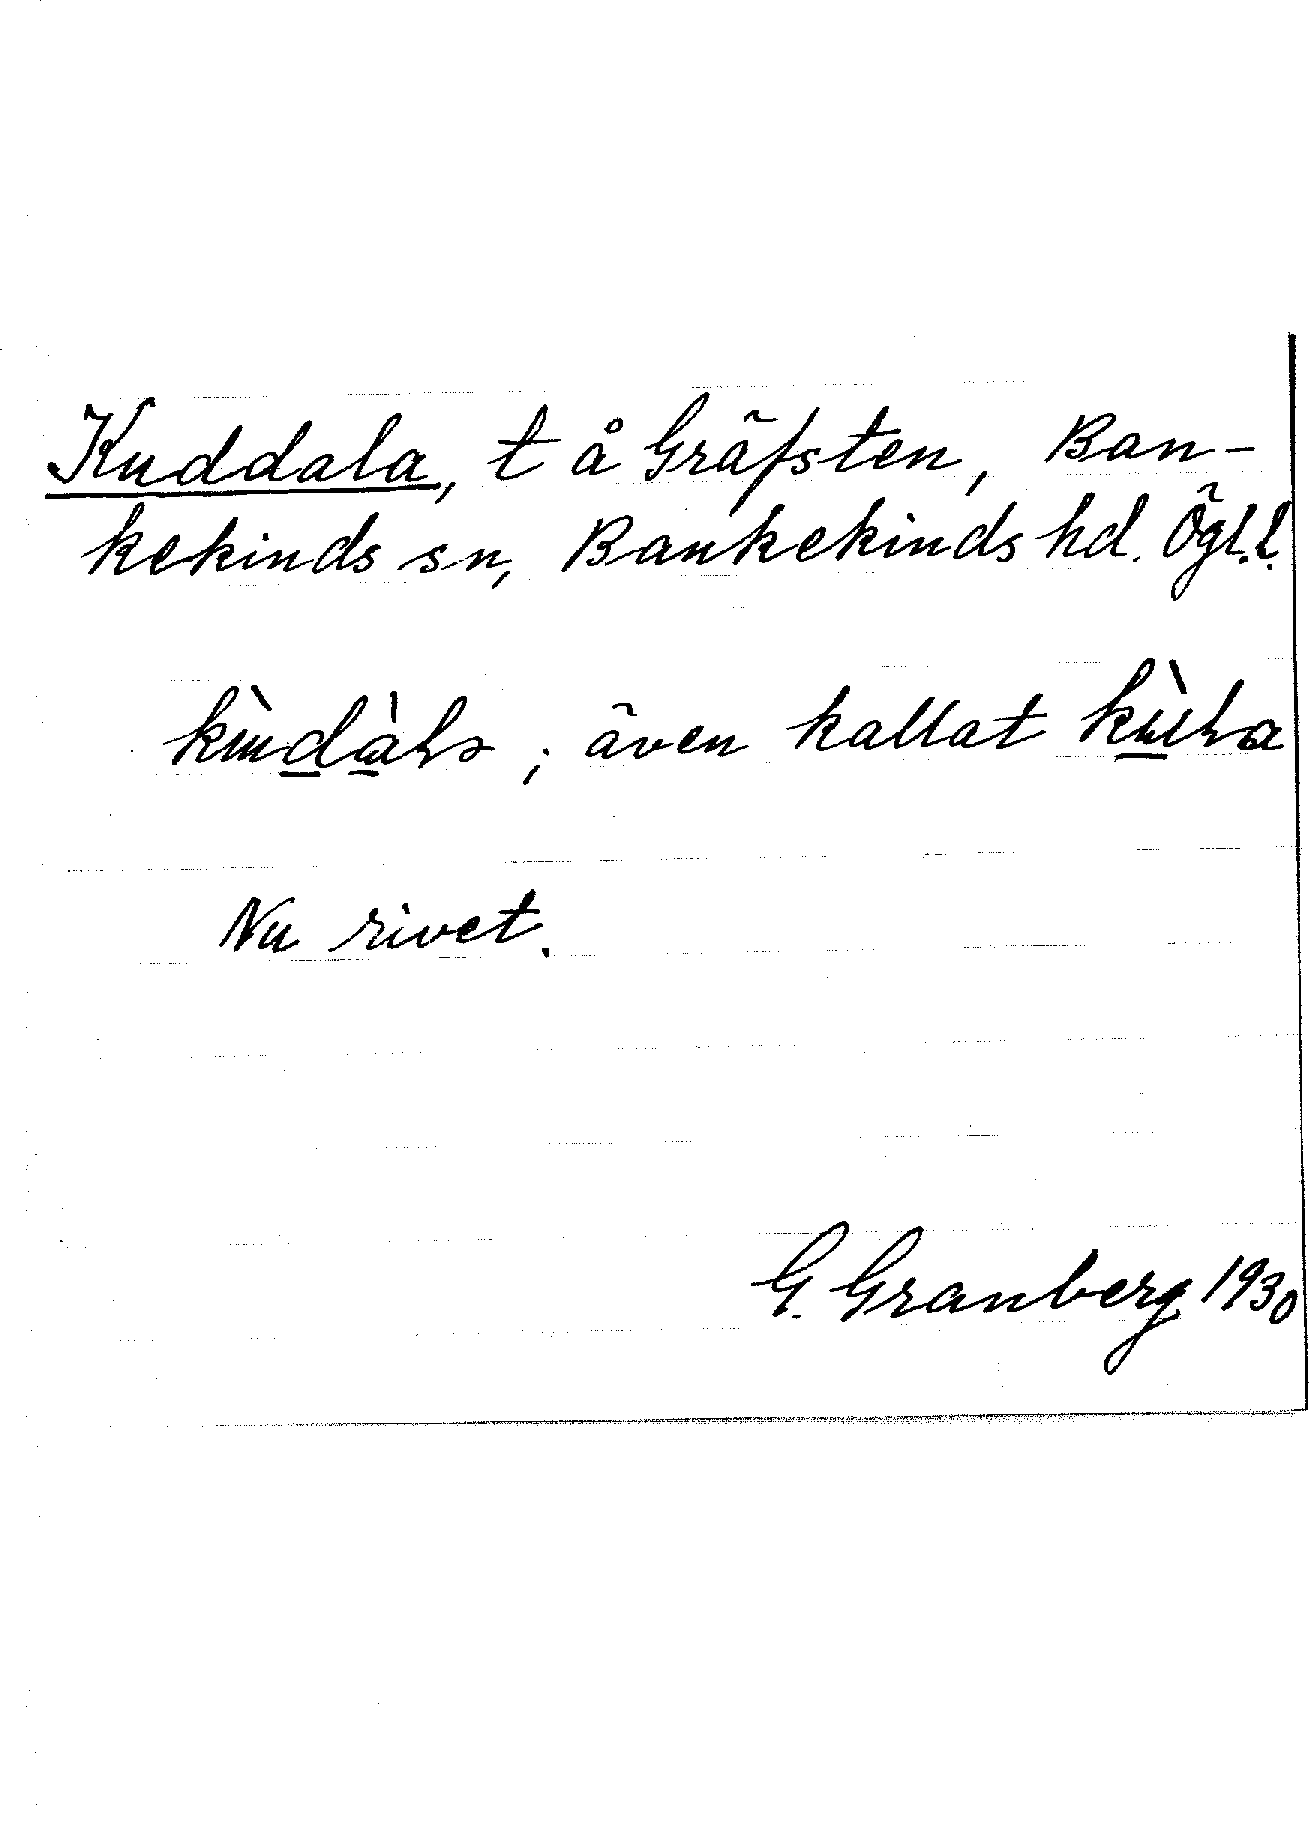 Kuddala, t å Gräfsten, Ban-
kekinds sn, Bankekinds hd. Ögl.l.
även kallat
Nu rivet.
G. Granberg 1930